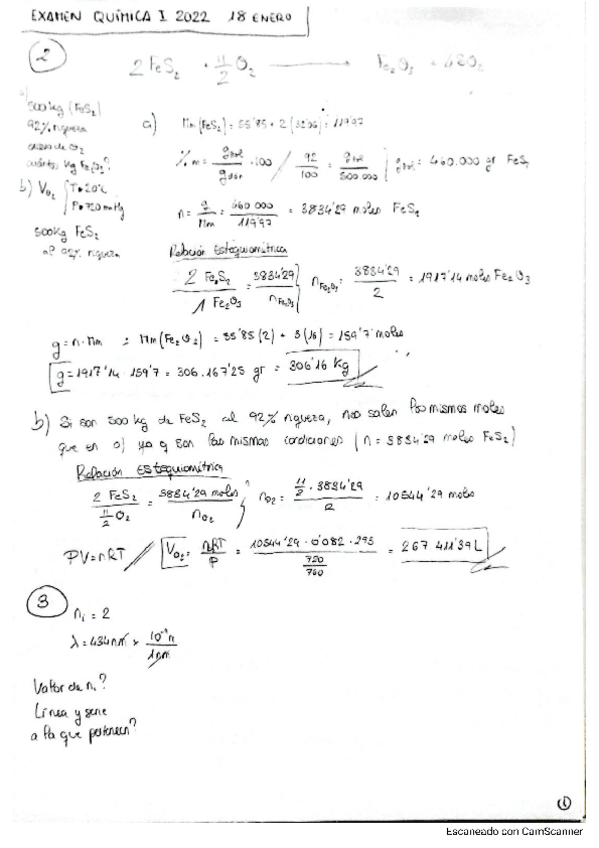 EXAMEN QUÍMICA I 2022 18 ENERO
2
2 FeS2 + 11/2 O2 → Fe2O3 + 4SO2
a)
500kg (FeS2)
92% riqueza
exceso de O2
cuántos kg Fe2O3?
b) VO2 { T=20ºC
P=720 mmHg
500kg FeS2
al 92% riqueza
a) Mm(FeS2) = 55'85 + 2(32'06) = 119'97
% m = g / g · 100 / 92/100 = g / 500.000 | g = 460.000 gr FeS2
n = g/Mm = 460 000/119'97 = 3834'29 moles FeS2
Relación Estequiométrica
2 FeS2 / 1 Fe2O3 = 3834'29 / nFe2O3 } nFe2O3 = 3834'29/2 = 1917'14 moles Fe2O3
g = n·Mm : Mm(Fe2O3) = 55'85(2) + 3(16) = 159'7 moles
g = 1917'14 · 159'7 = 306.167'25 gr = 306'16 Kg
b) Si son 500 kg de FeS2 al 92% riqueza, nos salen los mismos moles
que en a) ya q son las mismas condiciones (n = 3834'29 moles FeS2)
Relación Estequiométrica
2 FeS2 / 11/2 O2 = 3834'29 moles / nO2 } nO2 = 11/2 · 3834'29 / 2 = 10544'29 moles
PV=nRT // VO2 = nRT/P = 10544'29 · 0'082 · 293 / 720/760 = 267 411'39 L
3
ni = 2
λ = 434nm × 10-9m/1nm
Valor de n?
Línea y serie
a la que pertenecen?
1
Escaneado con CamScanner